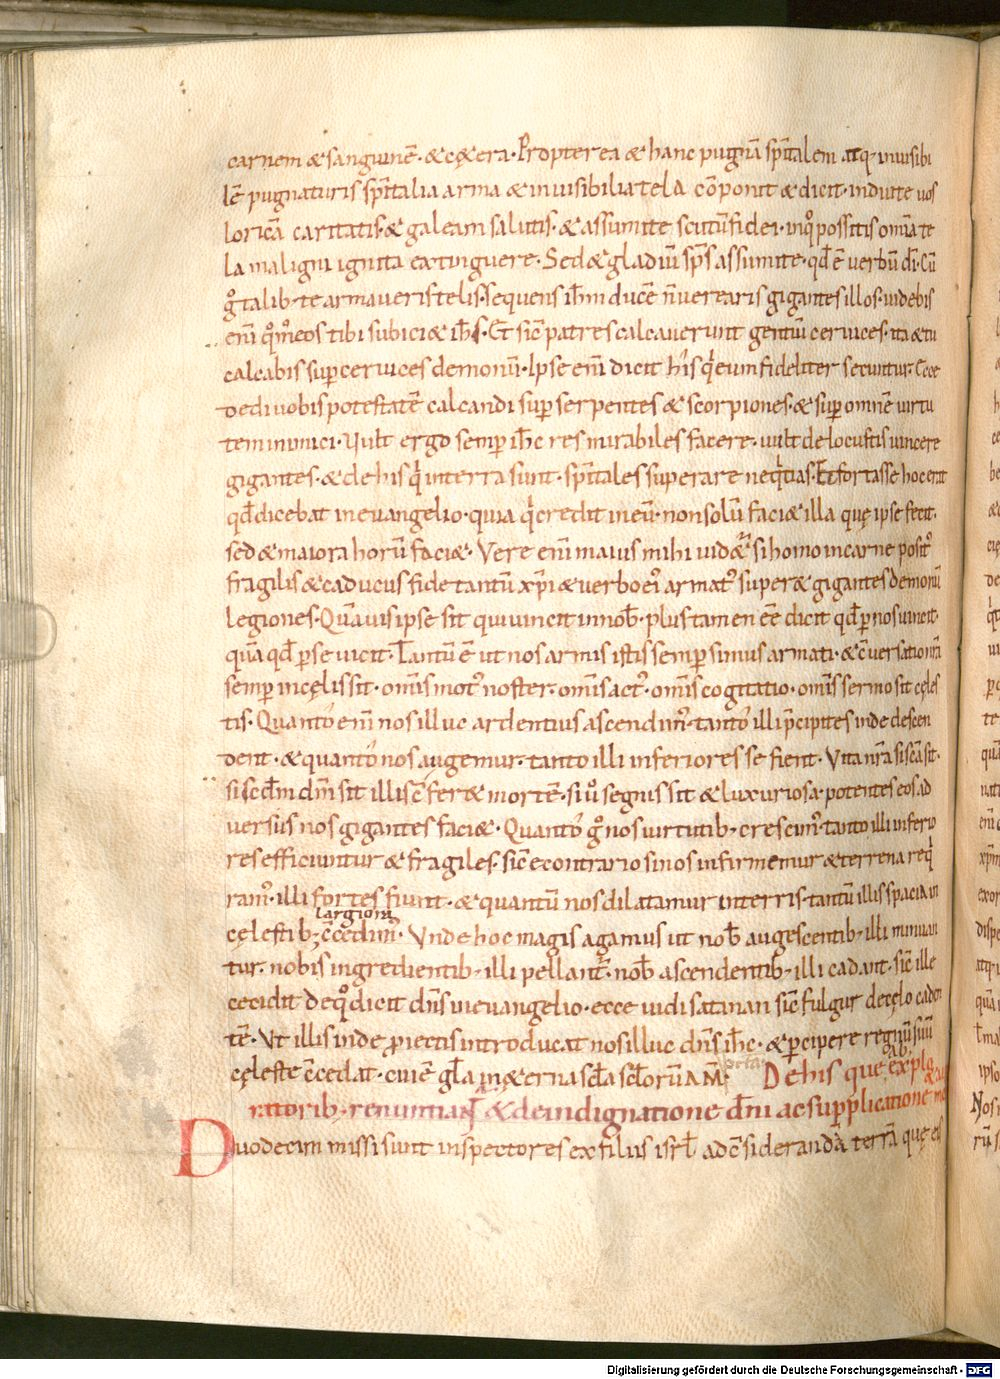 carnem & sanguinē· & cętera· Propterea & hanc pugnā sp̄italem atq; inuisibi
lē pugnaturis sp̄italia arma & inuisibilia tela cōponit & dicit· induite uos
loricā caritatis· & galeam salutis· & assumite scutū fidei· in qͦ possitis omīa te
la maligni ignita extinguere· Sed & gladiū sp̄s assumite· qd̄ ē uerbū dī· Cū
gͦ talib; te armaueris telis· sequens ih̄m ducē n̄ uerearis gigantes illos· uidebis
eni̅ qͦm̄ eos tibi subici& ih̄s· Et sic̄ patres calcauerunt gentiū ceruices· ita & tu
calcabis sup̄ ceruices demonū· Ipse eni̅ dicit his qͥ eum fideliter secuntur· Ecce
dedi uobis potestatē calcandi sup̄ serpentes & scorpiones· & sup̄ omnē uirtu
tem inimici· Uult ergo semp̄ ih̄c res mirabiles facere· uult de locustis uincere
gigantes· & de his qͥ in terra sunt· sp̄itales superare neqͥtias· Et fortasse hoc erat
qd̄ dicebat in euangelio· quia qͥ credit in eū· non solū faci& illa quę ipse fecit·
sed & maiora horū faci&· Vere eni̅ maius mihi uid&ᷣ si homo in carne positꝰ
fragilis & caducus fide tantū xp̄i & uerbo eiꝰ armatꝰ super& gigantes demonū
legiones· Quāuis ipse sit qui uincit in nob̄· plus tamen ēē dicit qd̄ p̱ nos uincit·
quā qd̄ p̱ se uicit· Tantū ē ut nos armis istis semp̄ simus armati· & c̄uersatio nr̄a
semp̄ in cęlis sit· omīs motꝰ noster· omīs actꝰ· omīs cogitatio· omīs sermo sit cęles
tis· Quanto eni̅ nos illuc ardentius ascendimꝰ· tanto illi p̄cipites inde descen
dent· & quanto nos augemur· tanto illi inferiores se fient· Vita nr̄a si sc̄a sit·
si sc̄dm dn̄m sit illis c̄fer& mortē· si uͦ segnis sit & luxuriosa· potentes eos ad
uersus nos gigantes faci&· Quanto gͦ nos uirtutib; crescimꝰ· tanto illi inferio
res efficiuntur & fragiles· sic̄ econtrario si nos infirmemur & terrena reqͥ
ramꝰ· illi fortes fiunt· & quantū nos dilatamur in terris· tantū illis spacia in
largiora
cęlestib; c̄cedimꝰ· Unde hoc magis agamus ut nob̄ augescentib; illi minuan
tur· nobis ingredientib; illi pellantᷣ· nob̄ ascendentib; illi cadant· sic̄ ille
cecidit de qͦ dicit dn̄s in euangelio· ecce uidi satanan sic̄ fulgur de cęlo caden
tē· Ut illis inde ꝓiectis introducat nos illuc dn̄s ih̄c· & p̱cipere regnū suū
cęleste c̄cedat· cui ē gl̄a in &erna sc̄la sc̄lorū AM̄ De his que explo
ratorib; renuntiant & de indignatione dn̄i ac supplicatione
Duodecim missi sunt inspectores ex filiis isrl̄ ad c̄siderandā terrā quę